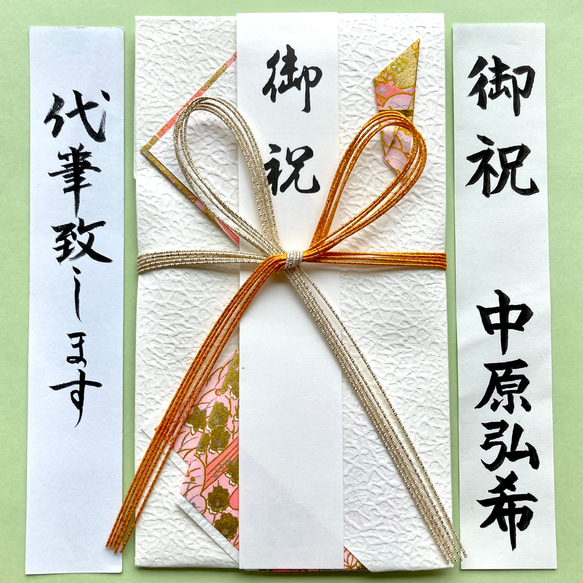 御祝
中原弘希
御祝
代筆致します